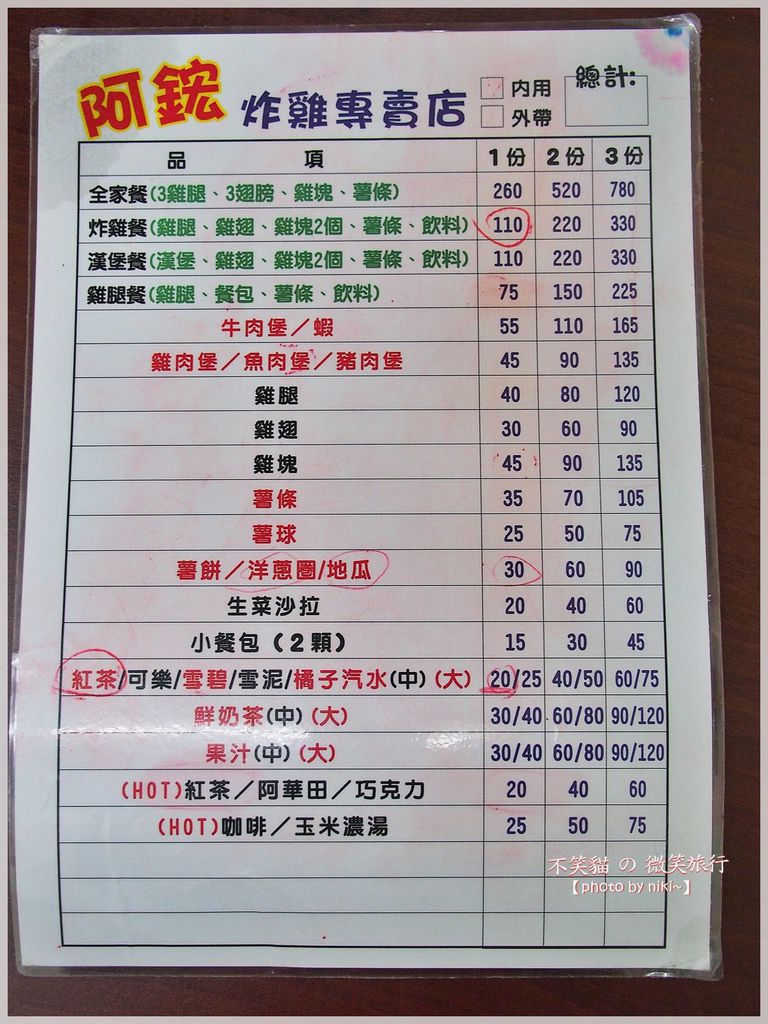 阿鋐 炸雞專賣店 □ 內用 總計:
□ 外帶
品 項 1份 2份 3份
全家餐(3雞腿、3翅膀、雞塊、薯條) 260 520 780
炸雞餐(雞腿、雞翅、雞塊2個、薯條、飲料) 110 220 330
漢堡餐(漢堡、雞翅、雞塊2個、薯條、飲料) 110 220 330
雞腿餐(雞腿、餐包、薯條、飲料) 75 150 225
牛肉堡／蝦 55 110 165
雞肉堡／魚肉堡／豬肉堡 45 90 135
雞腿 40 80 120
雞翅 30 60 90
雞塊 45 90 135
薯條 35 70 105
薯球 25 50 75
薯餅／洋蔥圈/地瓜 30 60 90
生菜沙拉 20 40 60
小餐包（2顆） 15 30 45
紅茶/可樂/雪碧/雪泥/橘子汽水(中)(大) 20/25 40/50 60/75
鮮奶茶(中)(大) 30/40 60/80 90/120
果汁(中)(大) 30/40 60/80 90/120
(HOT)紅茶／阿華田／巧克力 20 40 60
(HOT)咖啡／玉米濃湯 25 50 75
不笑貓 の 微笑旅行
【photo by niki~】